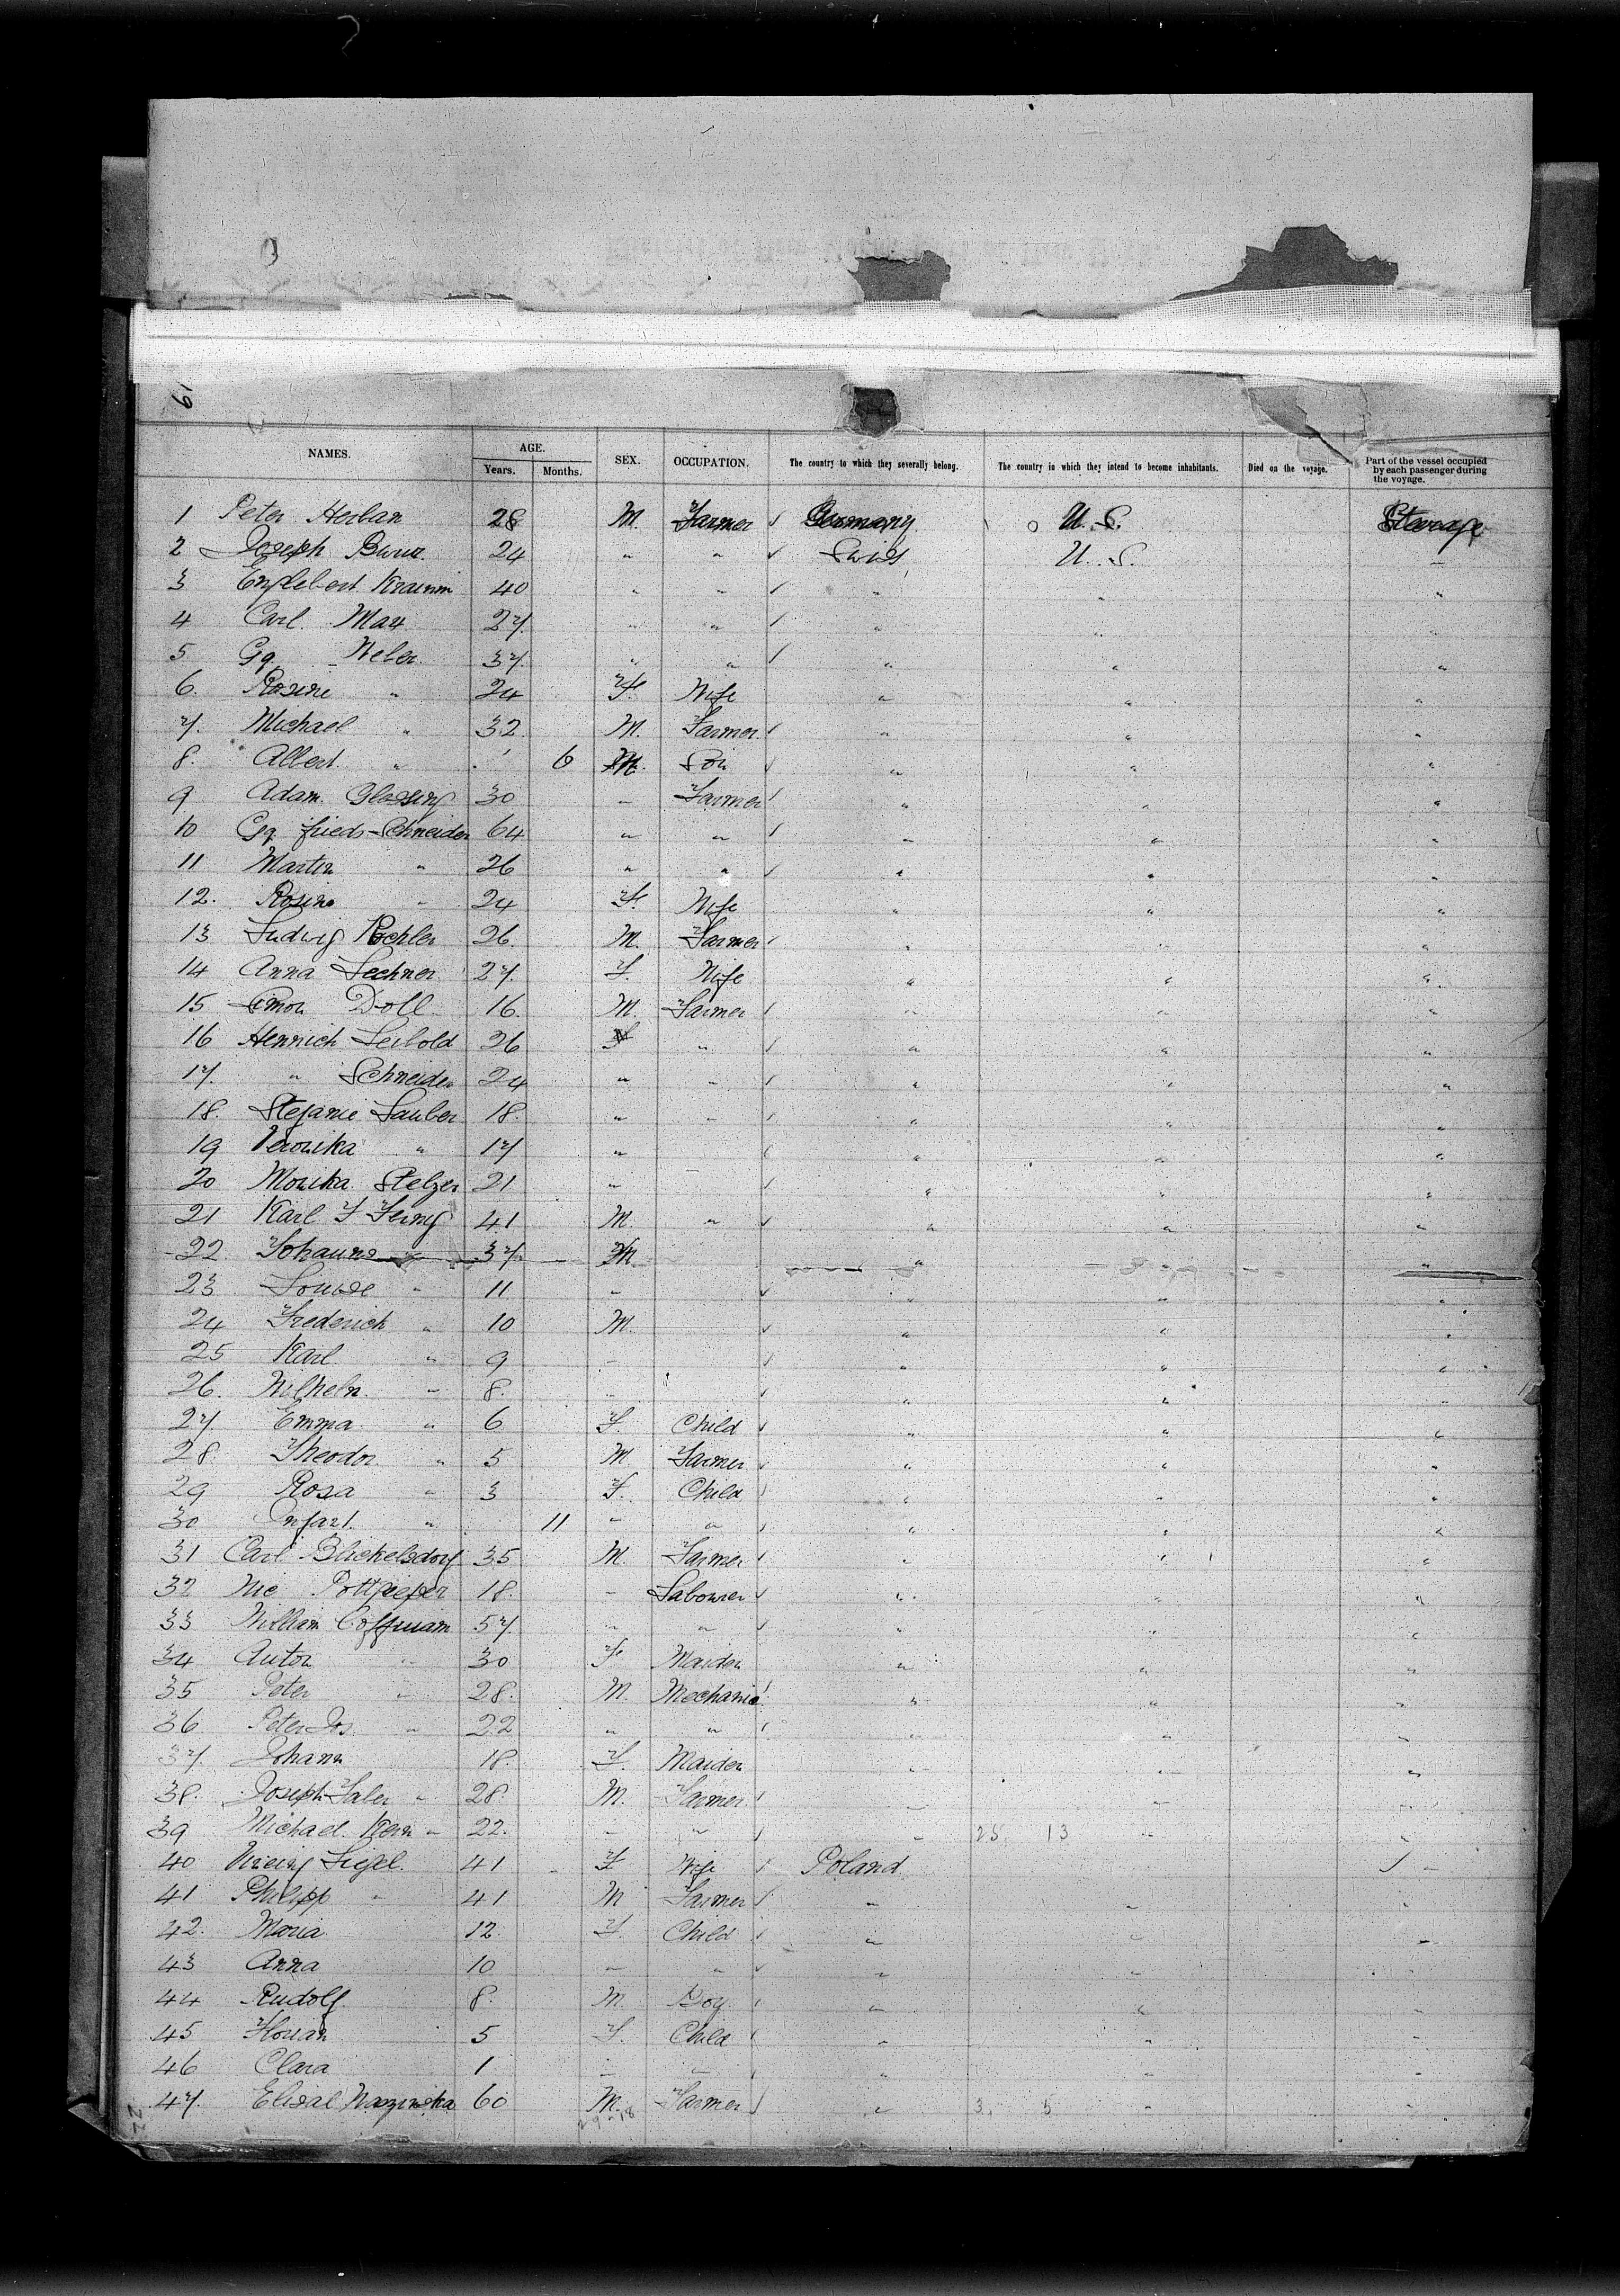 NAMES. AGE. Years. Months. SEX. OCCUPATION. The country to which they severally belong. The country in which they intend to become inhabitants. Died on the voyage. Part of the vessel occupied by each passenger during the voyage.
1 Peter Herban 28 M. Farmer Germany U. S. Steerage
2 Joseph 24 " " Swiss U. S. "
3 Englebert 40 " " " " "
4 Carl May 27 " " " " "
5 Gg. Weber 37 " " " " "
6. Rosine " 24 F. Wife " " "
7. Michael " 32 M. Farmer " " "
8. Albert " 6 M. Son " " "
9 Adam Glessing 30 " Farmer " " "
10 Gg. fried. Schneider 64 " " " " "
11 Martin " 26 " " " " "
12. Rosine " 24 F. Wife " " "
13 Ludwig Kochler 26 M. Farmer " " "
14 Anna Lechner 27. F. Wife " " "
15 Simon Doll 16. M. Farmer " " "
16 Heinrich Leibold 26 F " " " "
17. " Schneider 24 " " " " "
18 Stefanie Lauber 18. " " " " "
19 Veronika " 17 " " " "
20 Monika Stelzer 21 " " " "
21 Karl F Ferny 41 M. " " " "
22 Johanna " 37. M. " "
23 Louise " 11 " " " "
24 Frederich " 10 M. " " "
25 Karl " 9 " " " "
26. Wilhelm " 8. " " " "
27. Emma " 6 F. Child " " "
28. Theodor " 5 M Farmer " " "
29 Rosa " 3 F. Child " " "
30 Infant. " 11 " " " " "
31 Carl Blickelsdorf 35 M. Farmer " " "
32 Nic Pottpieper 18. " Labourer " " "
33 William Coffmam 57. " " " " "
34 Anton " 30 F Maiden " " "
35 Peter " 28. M. Mechanic " " "
36 Peter Jos. " 22 " " " " "
37. Johann 18. F. Maiden " " "
38. Joseph Saler " 28 M. Farmer. " " "
39 Michael Kern " 22. " " " 25 13 " "
40 Siegel. 41 F Wife Poland "
41 Philipp " 41 M Farmer " " "
42. Maria 12. F. Child " " "
43 Anna 10 " " " " "
44 Rudolf 8. M. Boy " " "
45 Florian 5 F. Child " " "
46 Clara 1 " " " " "
47. Elisal 60 M. Farmer " 3. 5 " "
29-18